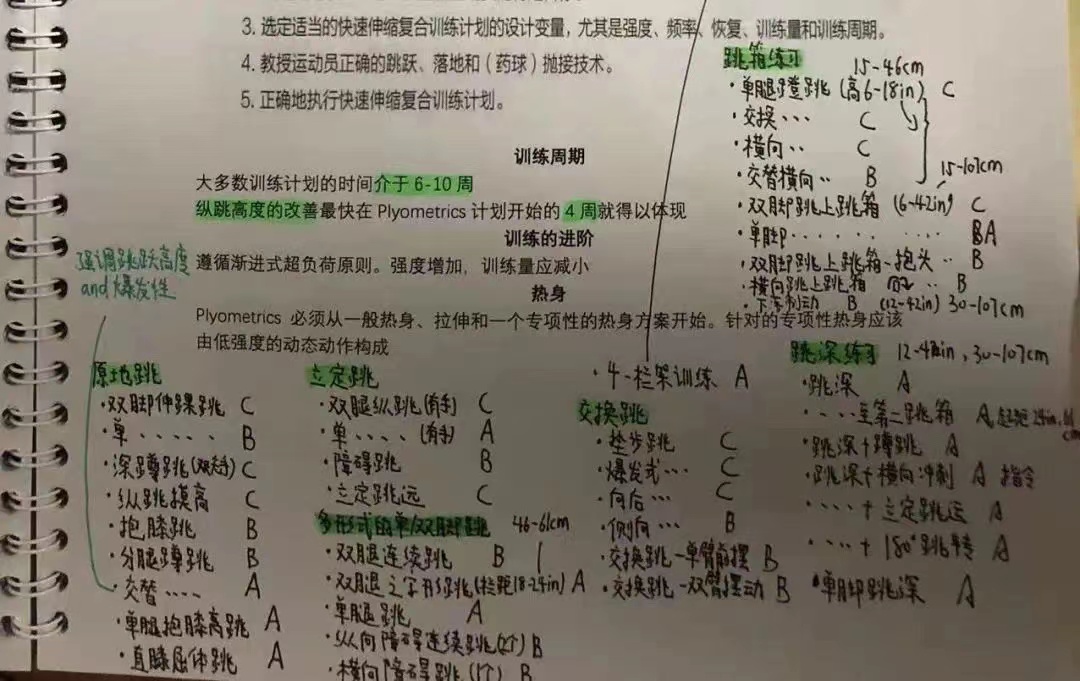 3. 选定适当的快速伸缩复合训练计划的设计变量，尤其是强度、频率、恢复、训练量和训练周期。
4. 教授运动员正确的跳跃、落地和（药球）抛接技术。
5. 正确地执行快速伸缩复合训练计划。
训练周期
大多数训练计划的时间介于 6-10 周
纵跳高度的改善最快在 Plyometrics 计划开始的 4 周就得以体现
训练的进阶
遵循渐进式超负荷原则。强度增加，训练量应减小
热身
Plyometrics 必须从一般热身、拉伸和一个专项性的热身方案开始。针对的专项性热身应该
由低强度的动态动作构成
强调跳跃高度
and 爆发性
跳箱练习
15-46cm
·单腿蹬跳（高6-18in） C
·交换··· C
·横向·· C
·交替横向·· B
15-107cm
·双脚跳上跳箱 (6-42in) C
·单脚······· A
·双脚跳上跳箱-抱头·· B
·横向跳上跳箱 ·· B
制动 B (12-42in) 30-107cm
原地跳
·双脚伸踝跳 C
·单····· B
·深蹲跳 C
·纵跳摸高 C
·抱膝跳 B
·分腿蹲跳 B
·交替···· A
·单腿抱膝离跳 A
·直膝屈体跳 A
立定跳
·双腿纵跳(有手) C
·单····(有手) A
·障碍跳 B
·立定跳远 C
多形式的单/双脚跳 46-61cm
·双腿连续跳 B
·双腿之字形跳(栏距18-24in) A
·单腿跳 A
·纵向障碍连续跳 B
·横向障碍跳 B
·4-栏架训练 A
交换跳
·垫步跳 C
·爆发式··· C
·向后··· C
·侧向··· B
·交换跳-单臂前摆 B
·交换跳-双臂摆动 B
跳深练习 30-107cm
·跳深 A
····至第二跳箱 A
·跳深+蹲跳 A
·跳深+横向冲刺 A 指令
····+立定跳远 A
····+180°跳转 A
·单脚跳深 A